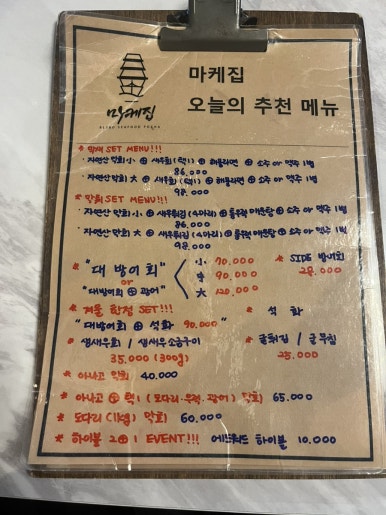 막케집
마케집
오늘의 추천 메뉴
* 막케 SET MENU!!!
· 자연산 막회 小 ⊕ 새우회 (택1) ⊕ 해물라면 ⊕ 소주 or 맥주 1병
86.000
· 자연산 막회 大 ⊕ 새우회 (택1) ⊕ 해물라면 ⊕ 소주 or 맥주 1병
98.000
* 막회 SET MENU!!!
· 자연산 막회 小 ⊕ 새우튀김 (4마리) ⊕ 매운탕 ⊕ 소주 or 맥주 1병
86.000
· 자연산 막회 大 ⊕ 새우튀김 (4마리) ⊕ 매운탕 ⊕ 소주 or 맥주 1병
98.000
* "대방어회"
or
"대방어회 ⊕ 광어"
小 70.000
中 90.000
大 120.000
* SIDE 방어회
28.000
* 겨울 한정 SET!!!
"대방어회 ⊕ 석화 90.000"
* 석화
* 생새우회 / 생새우소금구이
35.000 (300g)
* 굴튀김 / 굴무침
25.000
* 아나고 막회 40.000
* 아나고 ⊕ 택1 (도다리·우럭·광어) 막회 65.000
* 도다리 (1kg) 막회 60.000
* 하이볼 2⊕1 EVENT!!! 에드워드 하이볼 10.000